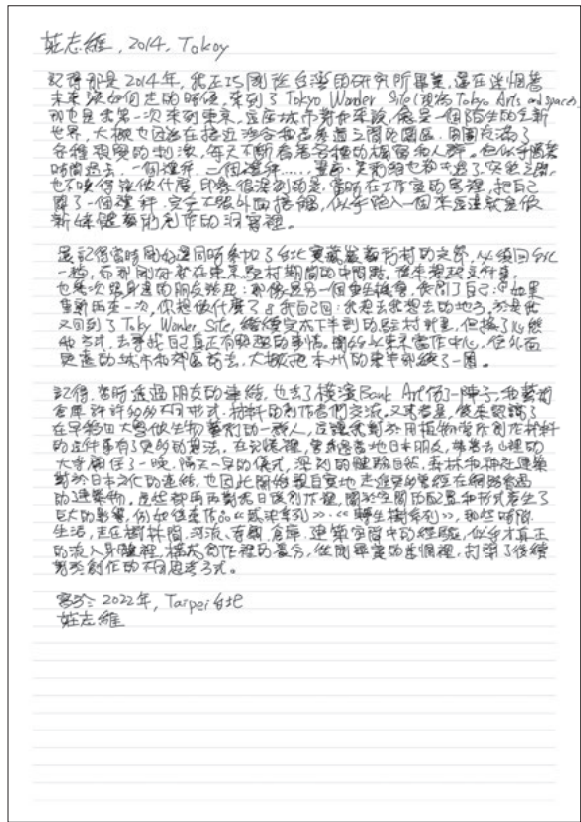 莊志維, 2014, Tokoy
記得那是2014年, 我正巧剛從台灣的研究所畢業, 還在迷惘著
未來該如何走的時候, 來到了 Tokyo Wonder Site (現為 Tokyo Arts and space),
那也是我第一次來到東京, 這座城市對我來說, 像是一個陌生的全新
世界, 大概也因為在接近澀谷和表參道之間的園區, 周圍充滿了
各種視覺的刺激, 每天不斷看著各種的櫥窗和人群。但似乎隨著
時間過去, 一個禮拜、二個禮拜......, 畫面
也不曉得該做什麼, 印象很深刻的是, 當時在工作室的房裡, 把自己
關了一個禮拜, 完全不跟外面接觸, 似乎陷入一個來這邊就是做
新媒體藝術創作的洞窟裡。
還記得當時開始還同時參加了台北寶藏巖藝術村的交節, 必須回台北
一趟, 而那剛好都在東京駐村期間的中間點, 後來想理
也幾次跟身邊的朋友 那像是另一個重生機會, 我問了自己:「如果
重新再來一次, 你想做什麼?」我自己回: 我想去我想去的地方。於是我
又回到了 Toky Wonder Site, 繼續完成下半部的駐村計畫, 但換了
方式, 去尋找自己真正有興趣的事情。開始以東京當作中心, 往外面
更遠的城市和郊區前去, 大概把本州的東半部繞了一圈。
記得, 當時透過朋友的連結, 也去了橫濱 Bank Art 待了一陣子, 和藝術
倉庫許許多多不同形式、材料的創作者們交流。又或者是, 後來認識了
在早稻田大學做生物藝術的一群人, 這讓我對於用植物當作創作材料
的這件事有了更多的想法。在記憶裡, 曾透過當地日本朋友, 接著去山裡的
大寺廟住了一晚, 隔天一早的儀式, 深刻的體驗自然、森林和神社建築
對於日本文化的連結, 也因此開始親自實地走近更多曾經在網路看過
的建築物。這些都再再對我日後創作裡, 關於空間的配置和形式產生了
巨大的影響, 例如像是作品《感染系列》、《轉生樹系列》, 那些時間
生活, 走在樹林間、河流、寺廟、倉庫、建築空間中的經驗, 似乎才真正
的流入身體裡, 構成創作裡的養分, 從剛畢業的迷惘裡, 打開了後續
對於創作的不同思考方式。
寫於: 2022年, Taipei 台北
莊志維